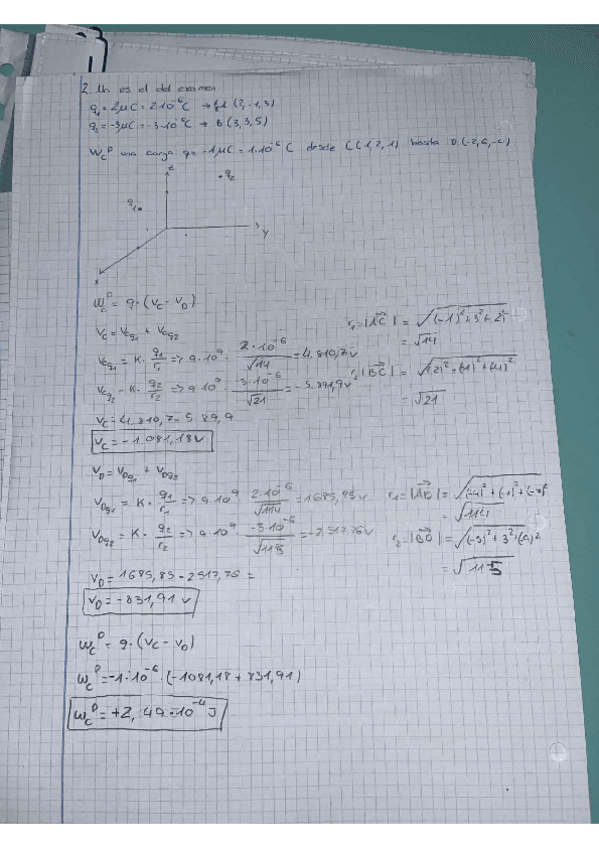 2. Un es el del examen
q₁ = 2μC = 2·10⁻⁶C → A (2,-1,3)
q₂ = -3μC = -3·10⁻⁶C → B (3,3,5)
W_C^D una carga q = -1μC = 1·10⁻⁶ C desde C(1,2,1) hasta D(-2,6,-4)
z
q₂
q₁
y
x
W_C^D = q·(V_C - V_D)
V_C = V_Cq₁ + V_Cq₂
r₁ = |AC| = √((-1)²+3²+2²)
= √14
V_Cq₁ = K · q₁/r₁ => 9·10⁹ · 2·10⁻⁶/√14 = 4.810,7v
V_Cq₂ = K · q₂/r₂ => 9·10⁹ · -3·10⁻⁶/√21 = -5.891,9v
r₂ |BC| = √((2)²+(1)²+(4)²)
= √21
V_C = 4.810,7 - 5.89,9
V_C = -1.081,18v
V_D = V_Dq₁ + V_Dq₂
V_Dq₁ = K · q₁/r₁ => 9·10⁹ 2·10⁻⁶/√114 = 1685,85v
r₁ = |AD| = √((-4)²+(7)²+(-7)²
= √114
V_Dq₂ = K · q₂/r₂ => 9·10⁹ · -3·10⁻⁶/√115 = -2.517,76v
r₂ = |BD| = √((-5)²+3²+(9)²
= √115
V_D = 1685,85 - 2517,76 =
V_D = -831,91 v
W_C^D = q·(V_C - V_D)
W_C^D = -1·10⁻⁶·(-1081,18 + 831,91)
W_C^D = +2,49·10⁻⁴ J